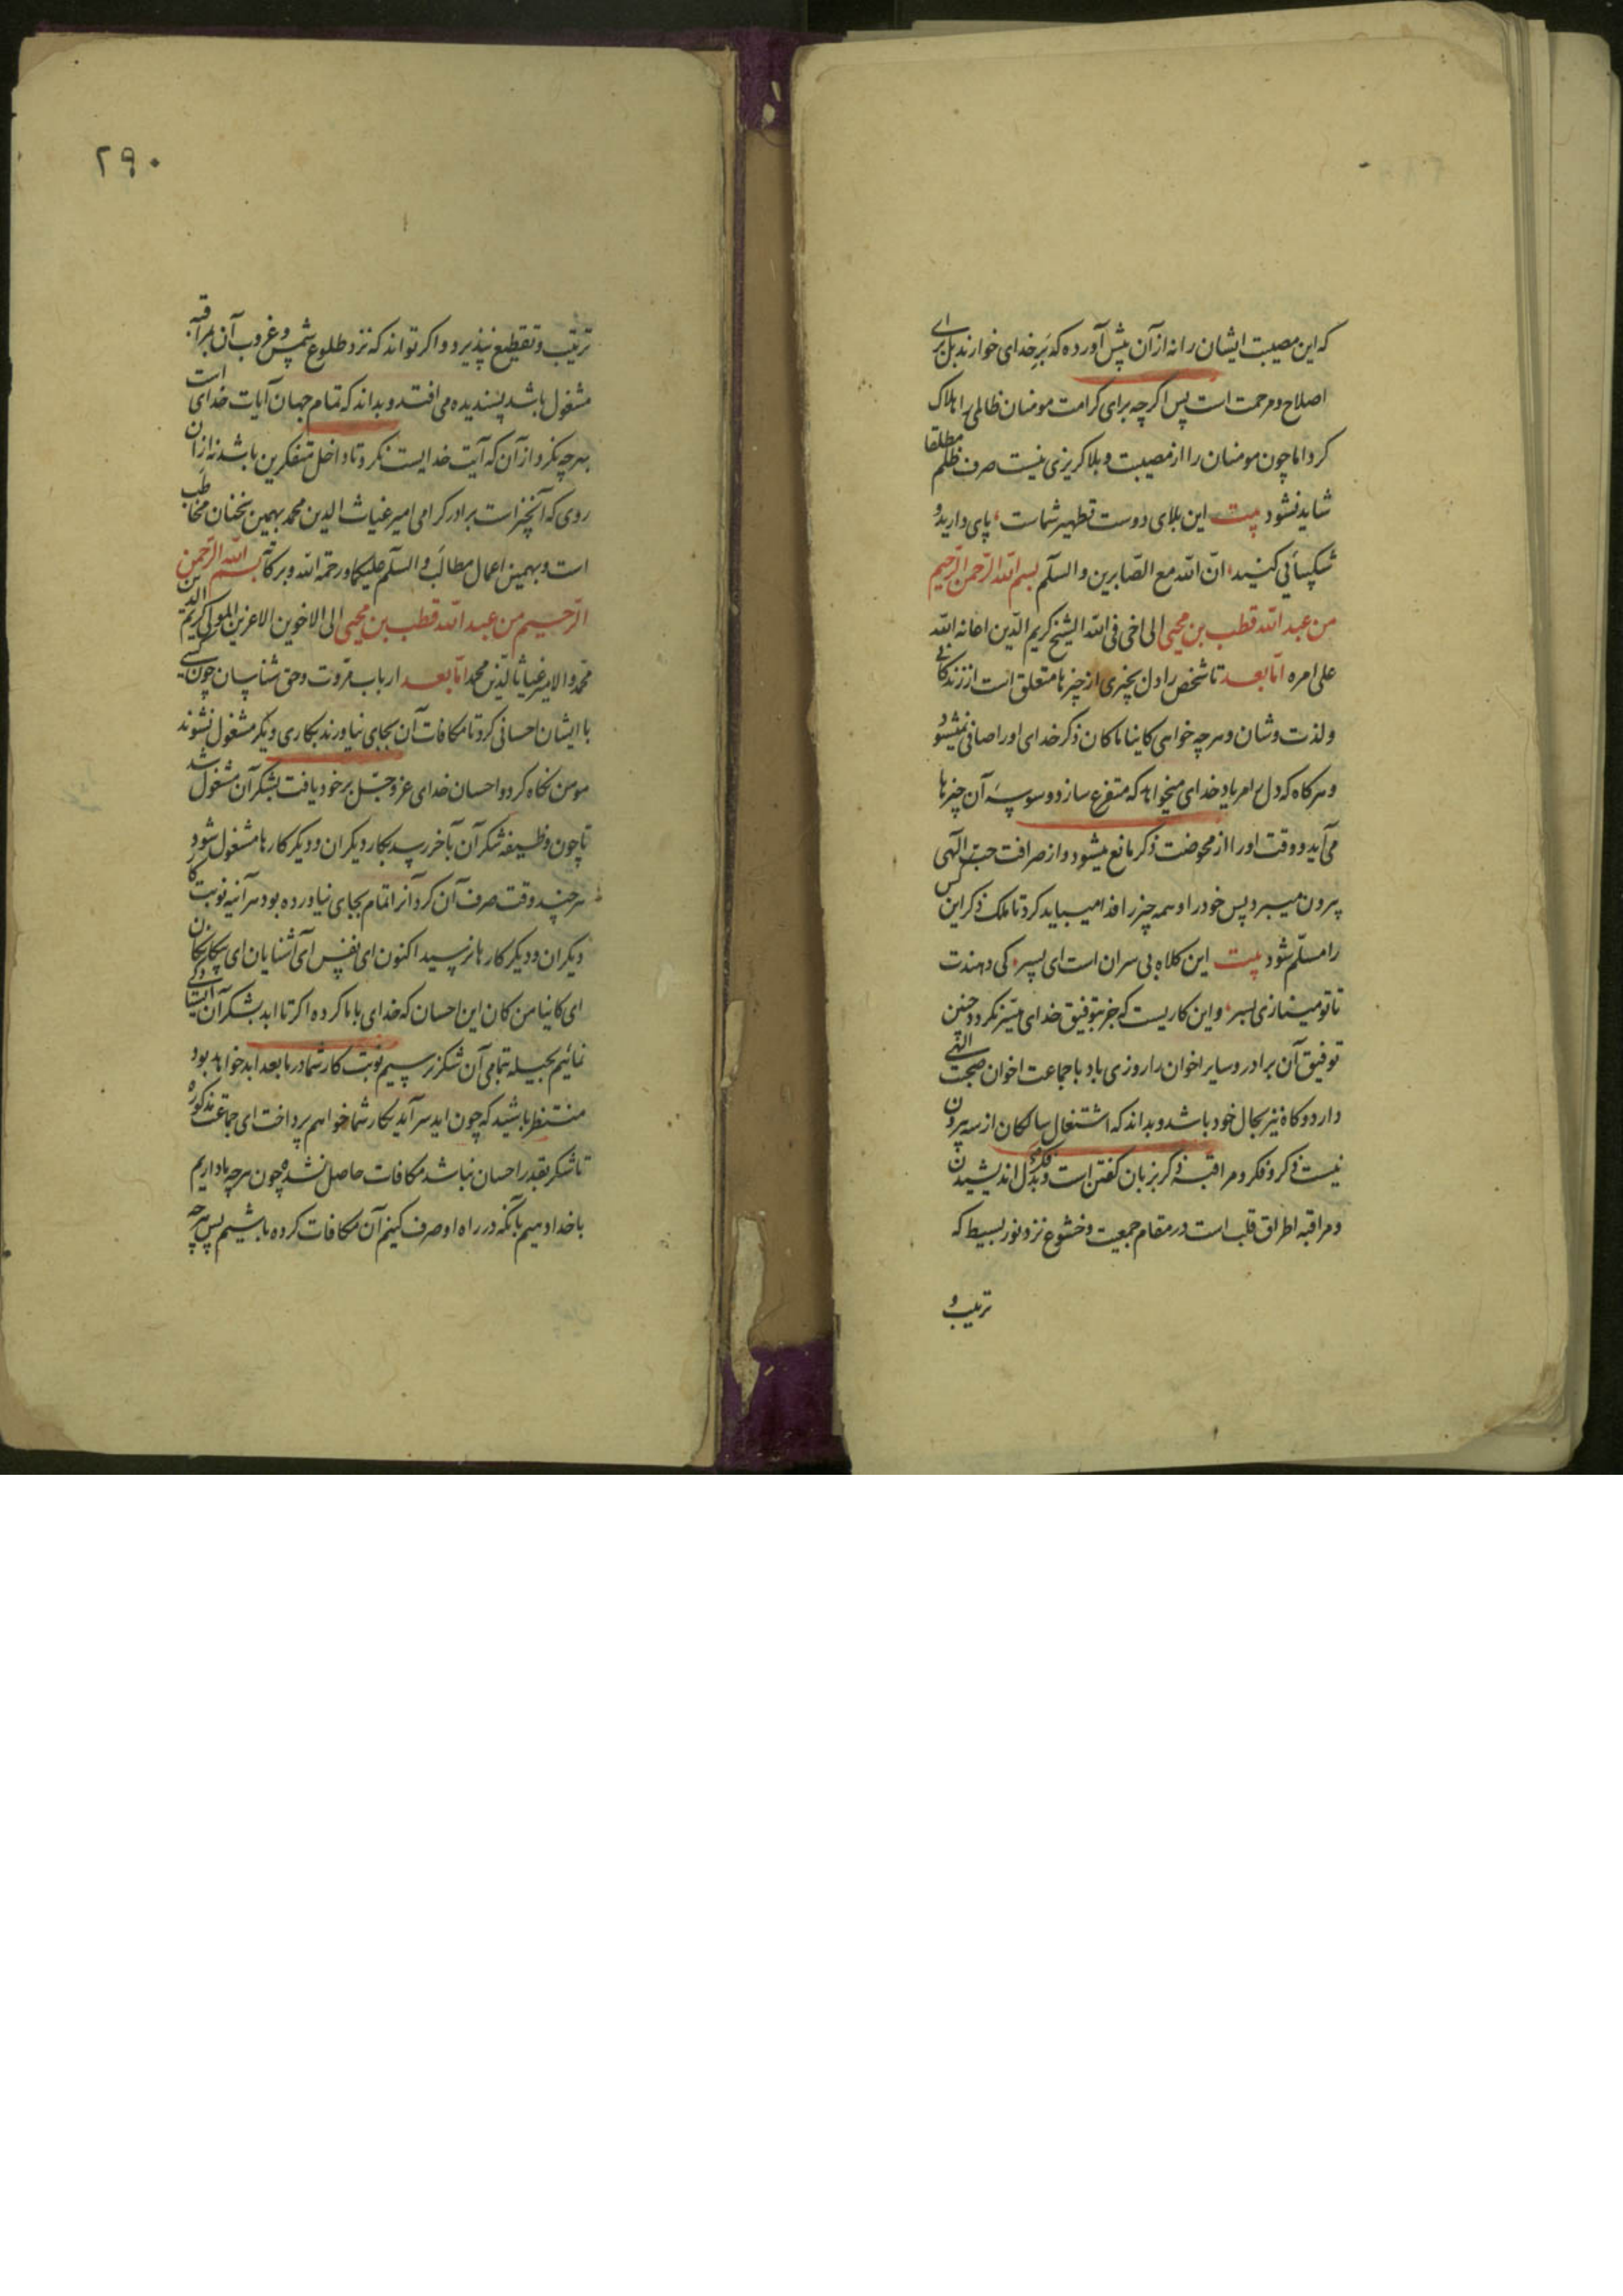 که این مصیبت ایشان را نه از آن پیش آورده که بر خدای خوارند بل برای
اصلاح و مرحمت است پس اکرچه برای کرامت مومنان ظالمی را هلاک
کرد اما چون مومنان را از مصیبت و بلا کریزی نیست صرف ظلم مطلقا
شاید نشود بیت این بلای دوست تطهیر شماست پای دارید و
شکیبائی کنید ان الله مع الصابرین والسلم بسم الله الرحمن الرحیم
من عبد الله قطب بن محیی الی اخی فی الله الشیخ کریم الدین اعانه الله
علی امره اما بعد تا شخص را دل بچیزی از چیزها متعلق است از زندکانی
و لذت و شان و هرچه خواهی کاینا ما کان ذکر خدای او را صافی نمیشود
و هرکاه که دل را بیاد خدای میخواهد که متفرغ سازد وسوسه آن چیزها
می آید و وقت او را از محوضت ذکر مانع میشود و از صرافت حب الهی
بیرون میبرد پس خود را و همه چیز را فدا میباید کرد تا ملک ذکر این کس
را مسلم شود بیت این کلاه بی سران است ای پسر کی دهندت
تا تو مینازی بسر و این کاریست که جز بتوفیق خدای میسر نکردد چنین
توفیق آن برادر و سایر اخوان را روزی باد با جماعت اخوان صحبت الهی
دارد و کاه نیز بحال خود باشد و بداند که اشتغال سالکان از سه بیرون
نیست ذکر و فکر و مراقبه ذکر بزبان کفتن است و فکر بدل اندیشیدن
و مراقبه اطراق قلب است در مقام جمعیت و خشوع نزد نور بسیط که
ترتیب و
۲۹۰
ترتیب و تقطیع نپذیرد و اکر تواند که نزد طلوع شمس و غروب آن بمراقبه
مشغول باشد پسندیده می افتد و بداند که تمام جهان آیات خدای است
بهرچه نکرد از آن که آیت خدایست نکرد تا داخل متفکرین باشد نه از آن
روی که آنچیز است برادر کرامی امیر غیاث الدین محمد بهمین سخنان مخاطب
است و بهمین اعمال مطالب والسلم علیکما و رحمة الله و برکاته بسم الله الرحمن
الرحیم من عبد الله قطب بن محیی الی الاخوین الاعزین المولی کریم الدین
محمد و الامیر غیاث الدین محمد اما بعد ارباب مروت و حق شناسان چون کسی
با ایشان احسانی کرد تا مکافات آن بجای نیاورند بکاری دیکر مشغول نشوند
مومن نکاه کرد و احسان خدای عز و جل بر خود یافت بشکر آن مشغول شد
تا چون وظیفه شکر آن بآخر رسد بکار دیکران و دیکر کارها مشغول شود
هر چند وقت صرف آن کرد آنرا تمام بجای نیاورده بود هرآینه نوبت کار
دیکران و دیکر کارها نرسید اکنون ای نفس ای آشنایان ای بیکانکان
ای کاینا من کان این احسان که خدای با ما کرده اکر تا ابد بشکر آن ایستادکی
نمائیم بحیله تمامی آن شکر نرسیم نوبت کار شما در ما بعد ابد خواهد بود
منتظر باشید که چون ابد سر آید بکار شما خواهم پرداخت ای جماعت مذکوره
تا شکر بقدر احسان نباشد مکافات حاصل نشده چون هرچه ما داریم
با خدا دهیم بآنکه در راه او صرف کنیم آن مکافات کرده باشیم پس هرچه